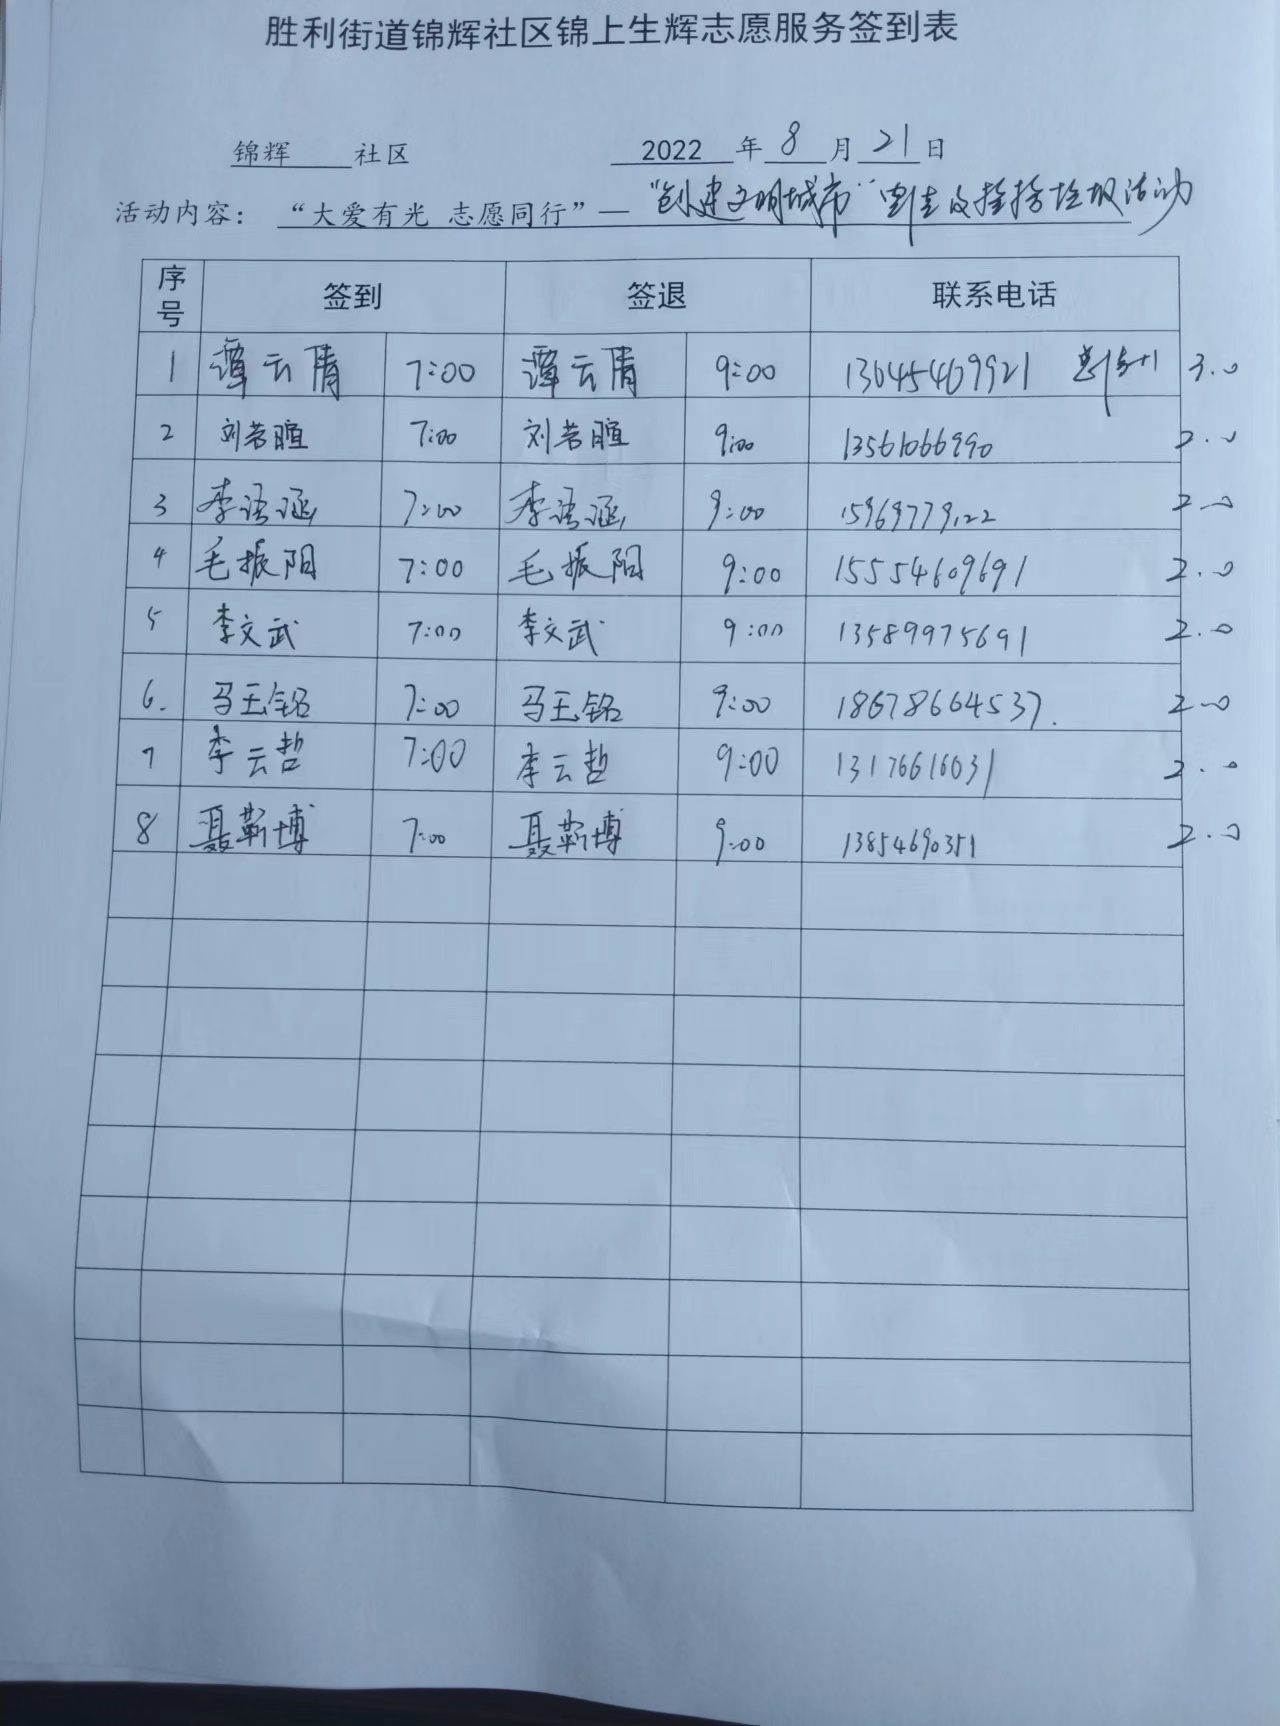 胜利街道锦辉社区锦上生辉志愿服务签到表
锦辉 社区 2022 年 8 月 21 日
活动内容： “大爱有光 志愿同行”— “创建文明城市” 及捡拾垃圾活动
序号 签到 签退 联系电话
1 谭云倩 7:00 谭云倩 9:00 13645469921 3.0
2 刘若暄 7:00 刘若暄 9:00 13561066990 2.0
3 李语涵 7:00 李语涵 9:00 15969779122 2.0
4 毛振阳 7:00 毛振阳 9:00 15554609691 2.0
5 李文武 7:00 李文武 9:00 13589975691 2.0
6. 马玉铭 7:00 马玉铭 9:00 18678664537. 2.0
7 李云哲 7:00 李云哲 9:00 13176616031 2.0
8 聂靳博 7:00 聂靳博 9:00 13854690351 2.0